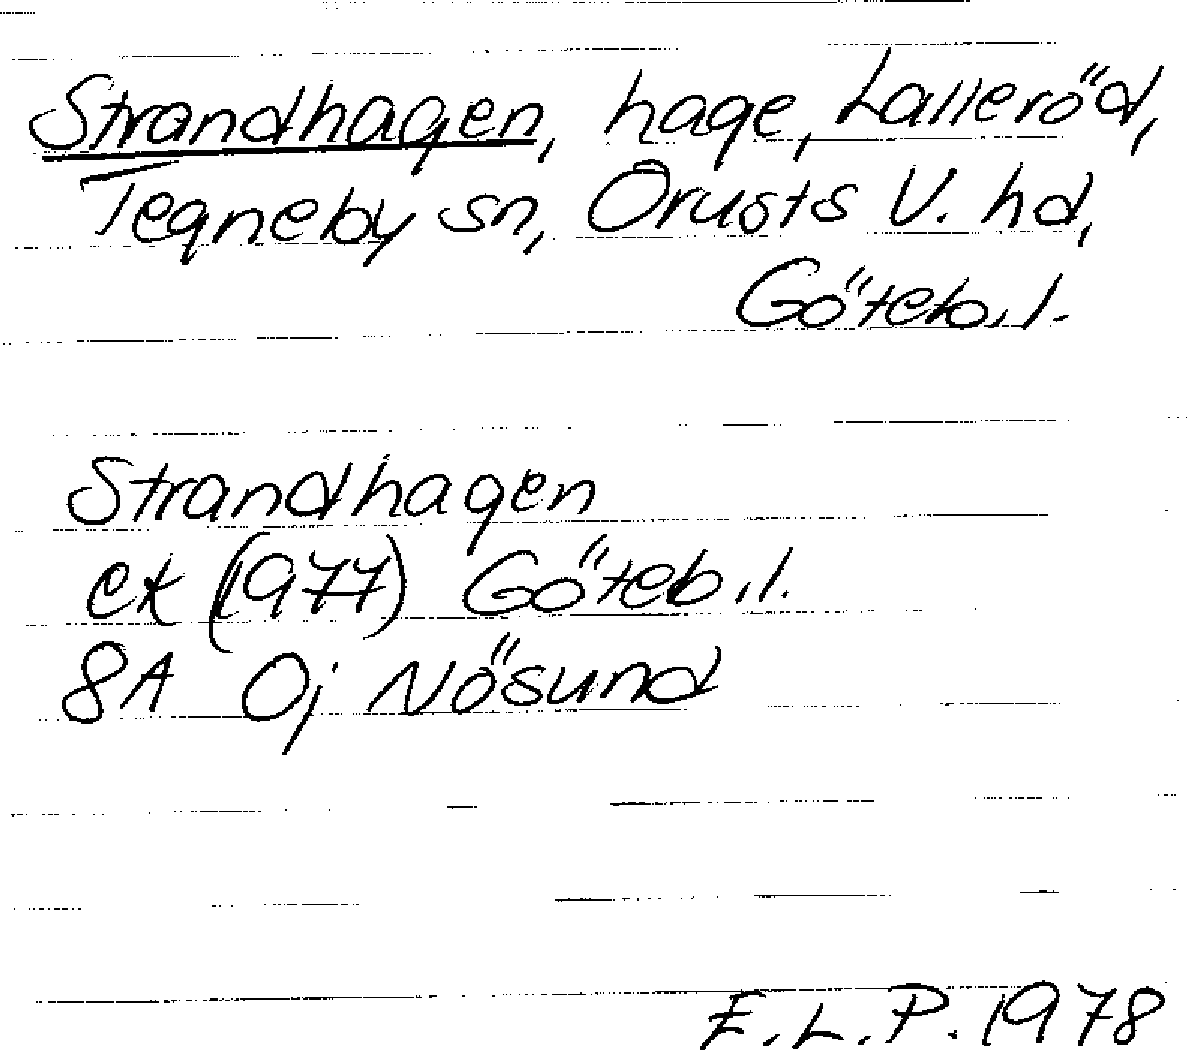 Strandhagen, hage, Lalleröd,
Tegneby sn, Orusts V. hd,
Göteb.l.
Strandhagen
ek (1977) Göteb.l.
8A 0j Nösund
E.L.P. 1978